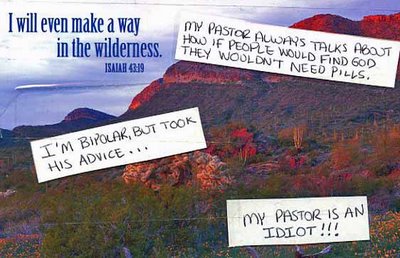 I will even make a way
in the wilderness.
ISAIAH 43:19
MY PASTOR ALWAYS TALKS ABOUT
HOW IF PEOPLE WOULD FIND GOD
THEY WOULDN'T NEED PILLS.
I'M BIPOLAR, BUT TOOK
HIS ADVICE...
MY PASTOR IS AN
IDIOT!!!